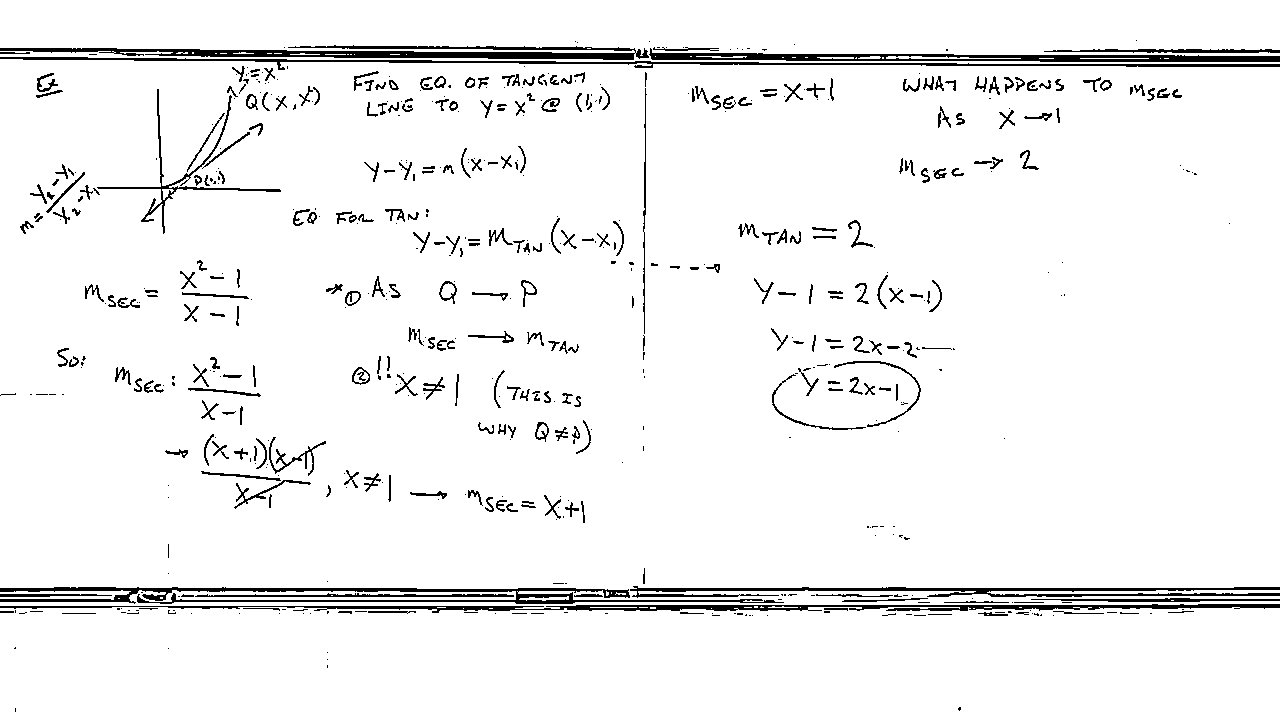 Ex
y=x²
Q(x,x²)
P(1,1)
m=y₂-y₁/x₂-x₁
FIND EQ. OF TANGENT
LINE TO y=x² @ (1,1)
y-y₁=m(x-x₁)
EQ FOR TAN:
y-y₁=m_TAN(x-x₁)
m_SEC = x²-1/x-1
① As Q → P
m_SEC → m_TAN
So:
m_SEC: x²-1/x-1
② !! x≠1 (THIS IS
WHY Q≠P)
→ (x+1)(x-1)/x-1, x≠1 → m_SEC=x+1
m_SEC=x+1
WHAT HAPPENS TO m_SEC
As x→1
m_SEC → 2
m_TAN=2
y-1=2(x-1)
y-1=2x-2
y=2x-1